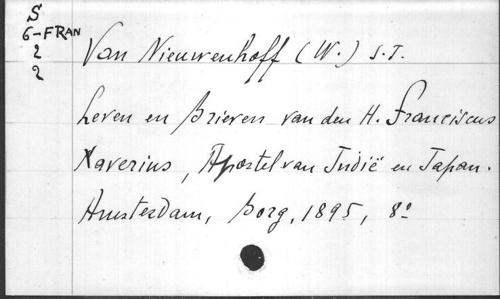 S
6-FRAN
2
2
Van Nieuwenhoff (W.) S.J.
Leven en Brieven van den H. Franciscus
Xaverius, Apostel van Indië en Japan.
Amsterdam, Borg, 1895, 8º